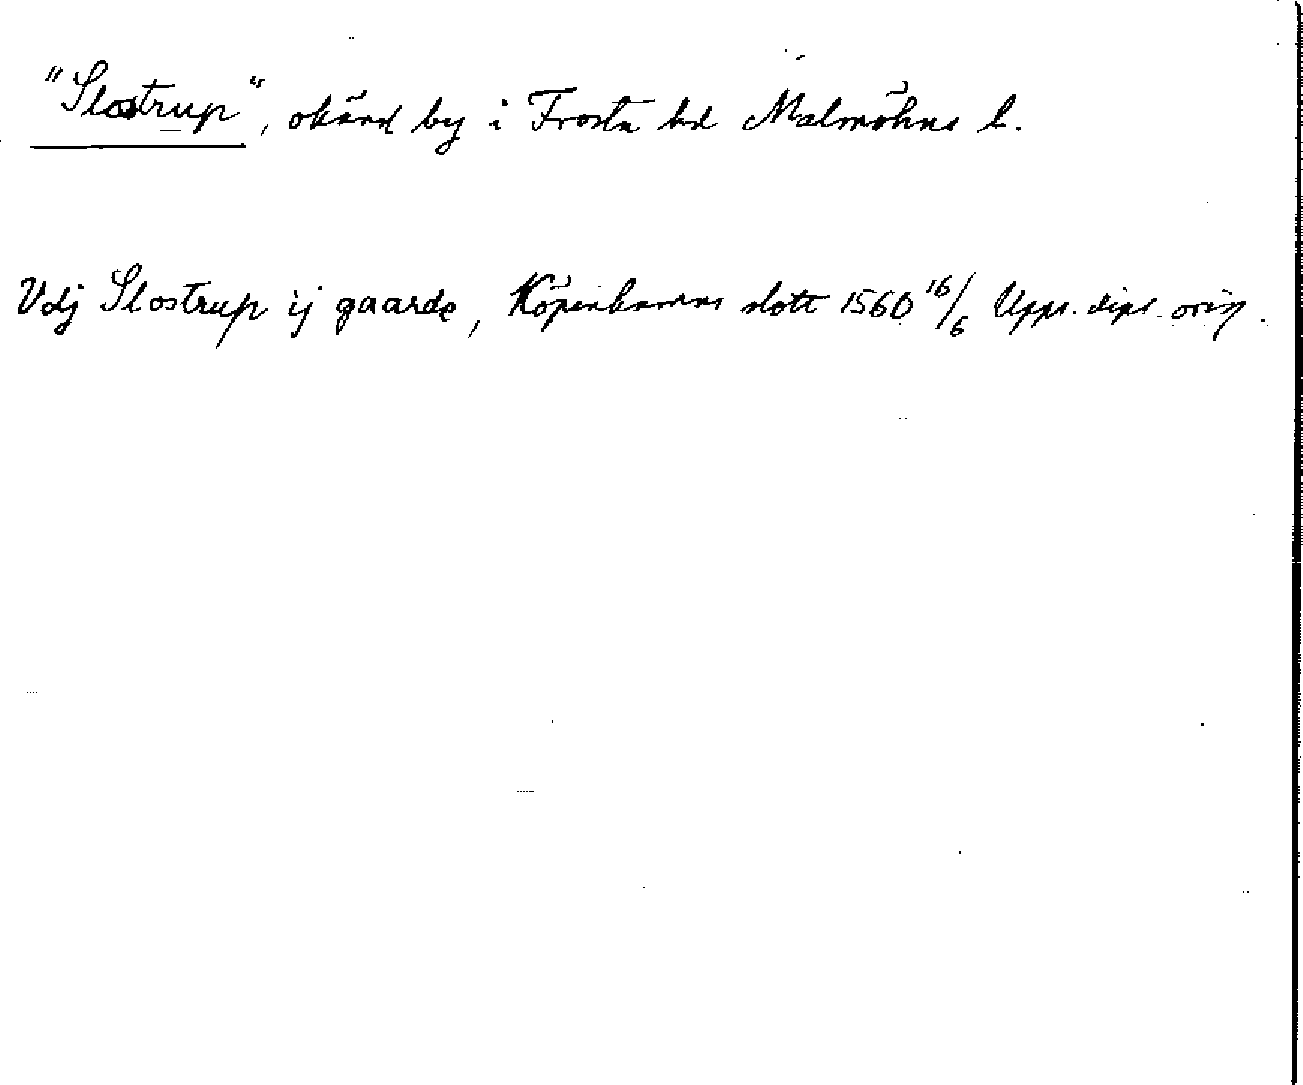 "Slostrup", okänd by i Frosta hd Malmöhus l.
Vdj Slostrup ij gaarde, Köpenhamns slott 1560 16/6 Upps. dipl. orig.